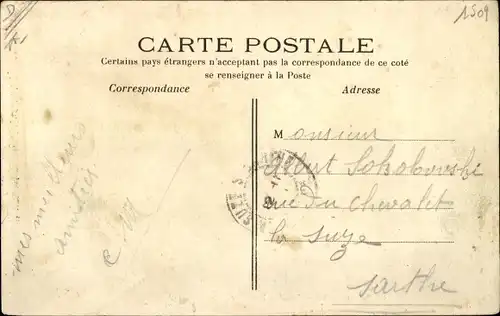 1509
CARTE POSTALE
Certains pays étrangers n'acceptant pas la correspondance de ce coté
se renseigner à la Poste
Correspondance
Adresse
mes meilleures
amitiés
Monsieur
Albert Sokolowski
rue du Chevalet
la Suze
Sarthe